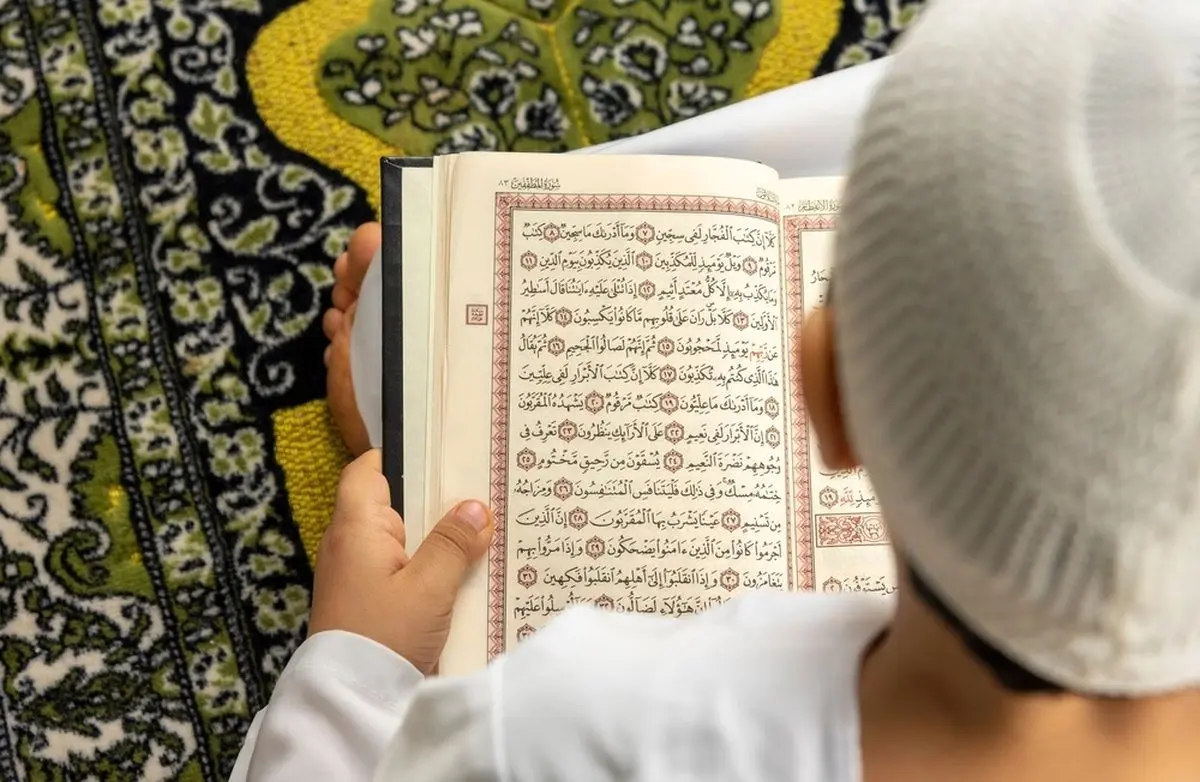 لِلَّهِ ١٩
يَسْتَوْفُونَ ٢
سُورَةُ المُطَفِّفِينَ ٨٣
كَلَّآ إِنَّ كِتَٰبَ ٱلْفُجَّارِ لَفِى سِجِّينٍ ٧ وَمَآ أَدْرَىٰكَ مَا سِجِّينٌ ٨ كِتَٰبٌ
مَّرْقُومٌ ٩ وَيْلٌ يَوْمَئِذٍ لِّلْمُكَذِّبِينَ ١٠ ٱلَّذِينَ يُكَذِّبُونَ بِيَوْمِ ٱلدِّينِ ١١
وَمَا يُكَذِّبُ بِهِۦٓ إِلَّا كُلُّ مُعْتَدٍ أَثِيمٍ ١٢ إِذَا تُتْلَىٰ عَلَيْهِ ءَايَٰتُنَا قَالَ أَسَٰطِيرُ
ٱلْأَوَّلِينَ ١٣ كَلَّا بَلْ رَانَ عَلَىٰ قُلُوبِهِم مَّا كَانُوا۟ يَكْسِبُونَ ١٤ كَلَّآ إِنَّهُمْ
عَن رَّبِّهِمْ يَوْمَئِذٍ لَّمَحْجُوبُونَ ١٥ ثُمَّ إِنَّهُمْ لَصَالُوا۟ ٱلْجَحِيمِ ١٦ ثُمَّ يُقَالُ
هَٰذَا ٱلَّذِى كُنتُم بِهِۦ تُكَذِّبُونَ ١٧ كَلَّآ إِنَّ كِتَٰبَ ٱلْأَبْرَارِ لَفِى عِلِّيِّينَ
١٨ وَمَآ أَدْرَىٰكَ مَا عِلِّيُّونَ ١٩ كِتَٰبٌ مَّرْقُومٌ ٢٠ يَشْهَدُهُ ٱلْمُقَرَّبُونَ
٢١ إِنَّ ٱلْأَبْرَارَ لَفِى نَعِيمٍ ٢٢ عَلَى ٱلْأَرَآئِكِ يَنظُرُونَ ٢٣ تَعْرِفُ فِى
وُجُوهِهِمْ نَضْرَةَ ٱلنَّعِيمِ ٢٤ يُسْقَوْنَ مِن رَّحِيقٍ مَّخْتُومٍ ٢٥
خِتَٰمُهُۥ مِسْكٌ ۚ وَفِى ذَٰلِكَ فَلْيَتَنَافَسِ ٱلْمُتَنَٰفِسُونَ ٢٦ وَمِزَاجُهُۥ
مِن تَسْنِيمٍ ٢٧ عَيْنًا يَشْرَبُ بِهَا ٱلْمُقَرَّبُونَ ٢٨ إِنَّ ٱلَّذِينَ
أَجْرَمُوا۟ كَانُوا۟ مِنَ ٱلَّذِينَ ءَامَنُوا۟ يَضْحَكُونَ ٢٩ وَإِذَا مَرُّوا۟ بِهِمْ
يَتَغَامَزُونَ ٣٠ وَإِذَا ٱنقَلَبُوٓا۟ إِلَىٰٓ أَهْلِهِمُ ٱنقَلَبُوا۟ فَكِهِينَ ٣١
إِنَّ هَٰٓؤُلَآءِ لَضَآلُّونَ ٣٢ أُرْسِلُوا۟ عَلَيْهِمْ